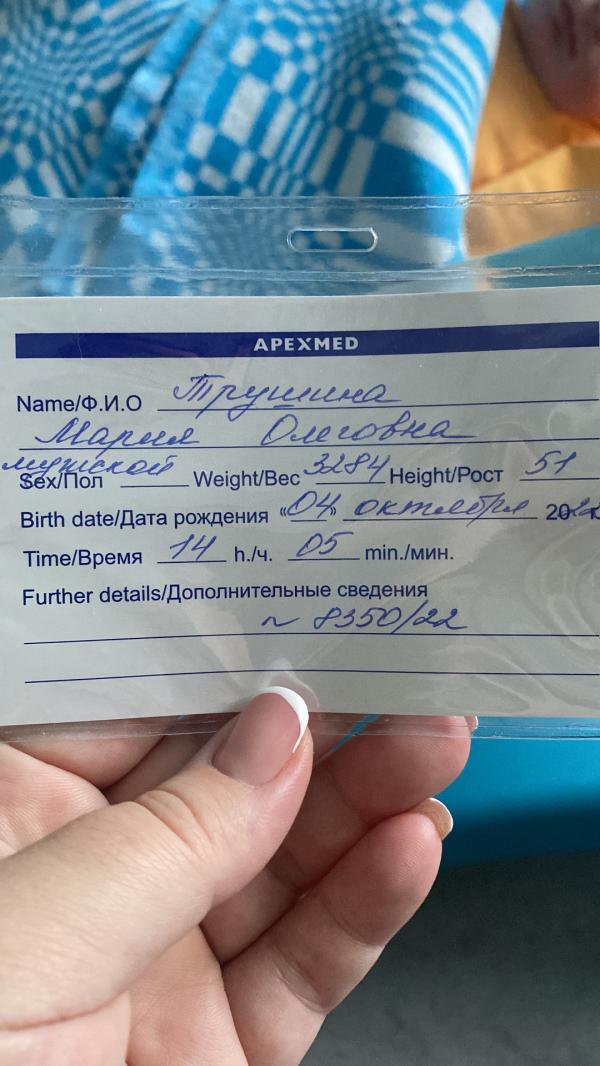 APEXMED
Name/Ф.И.О Трушина
Мария Олеговна
мужской
Sex/Пол Weight/Вес 3284 Height/Рост 51
Birth date/Дата рождения «04» октября 2022
Time/Время 14 h./ч. 05 min./мин.
Further details/Дополнительные сведения
N 8350/22